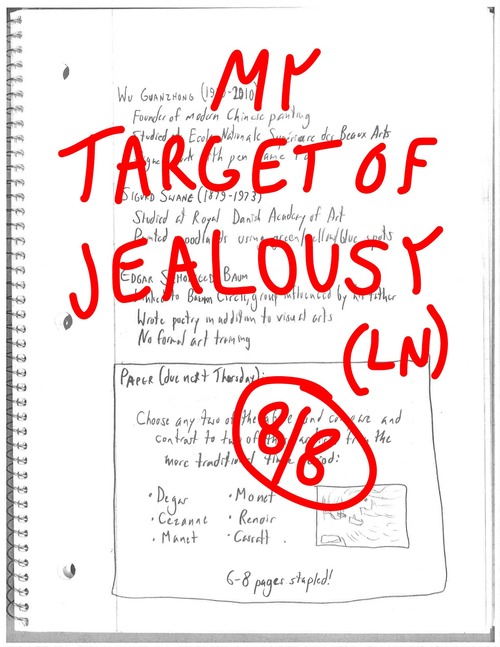 MY
TARGET OF
JEALOUSY
(LN)
8/8
WU GUANZHONG (19 -2010)
Founder of modern Chinese painting
Studied at Ecole Nationale Supérieure des Beaux Arts
with pen name
SIGURD SWANE (1879-1973)
Studied at Royal Danish Academy of Art
Painted woodlands using green/yellow/blue spots
EDGAR BAUM
Linked to Circle, group influenced by his father
Wrote poetry in addition to visual arts
No formal art training
PAPER (due next Thursday):
Choose any two of the above and compare and
contrast to two of the from the
more traditional time period:
• Degas • Monet
• Cezanne • Renoir
• Manet • Cassatt
6-8 pages stapled!